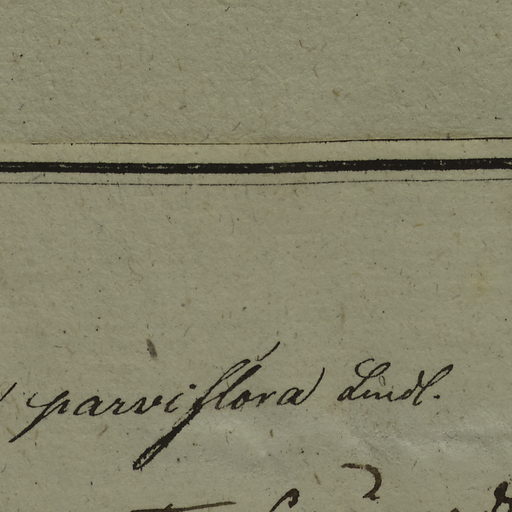 parviflora Lindl.